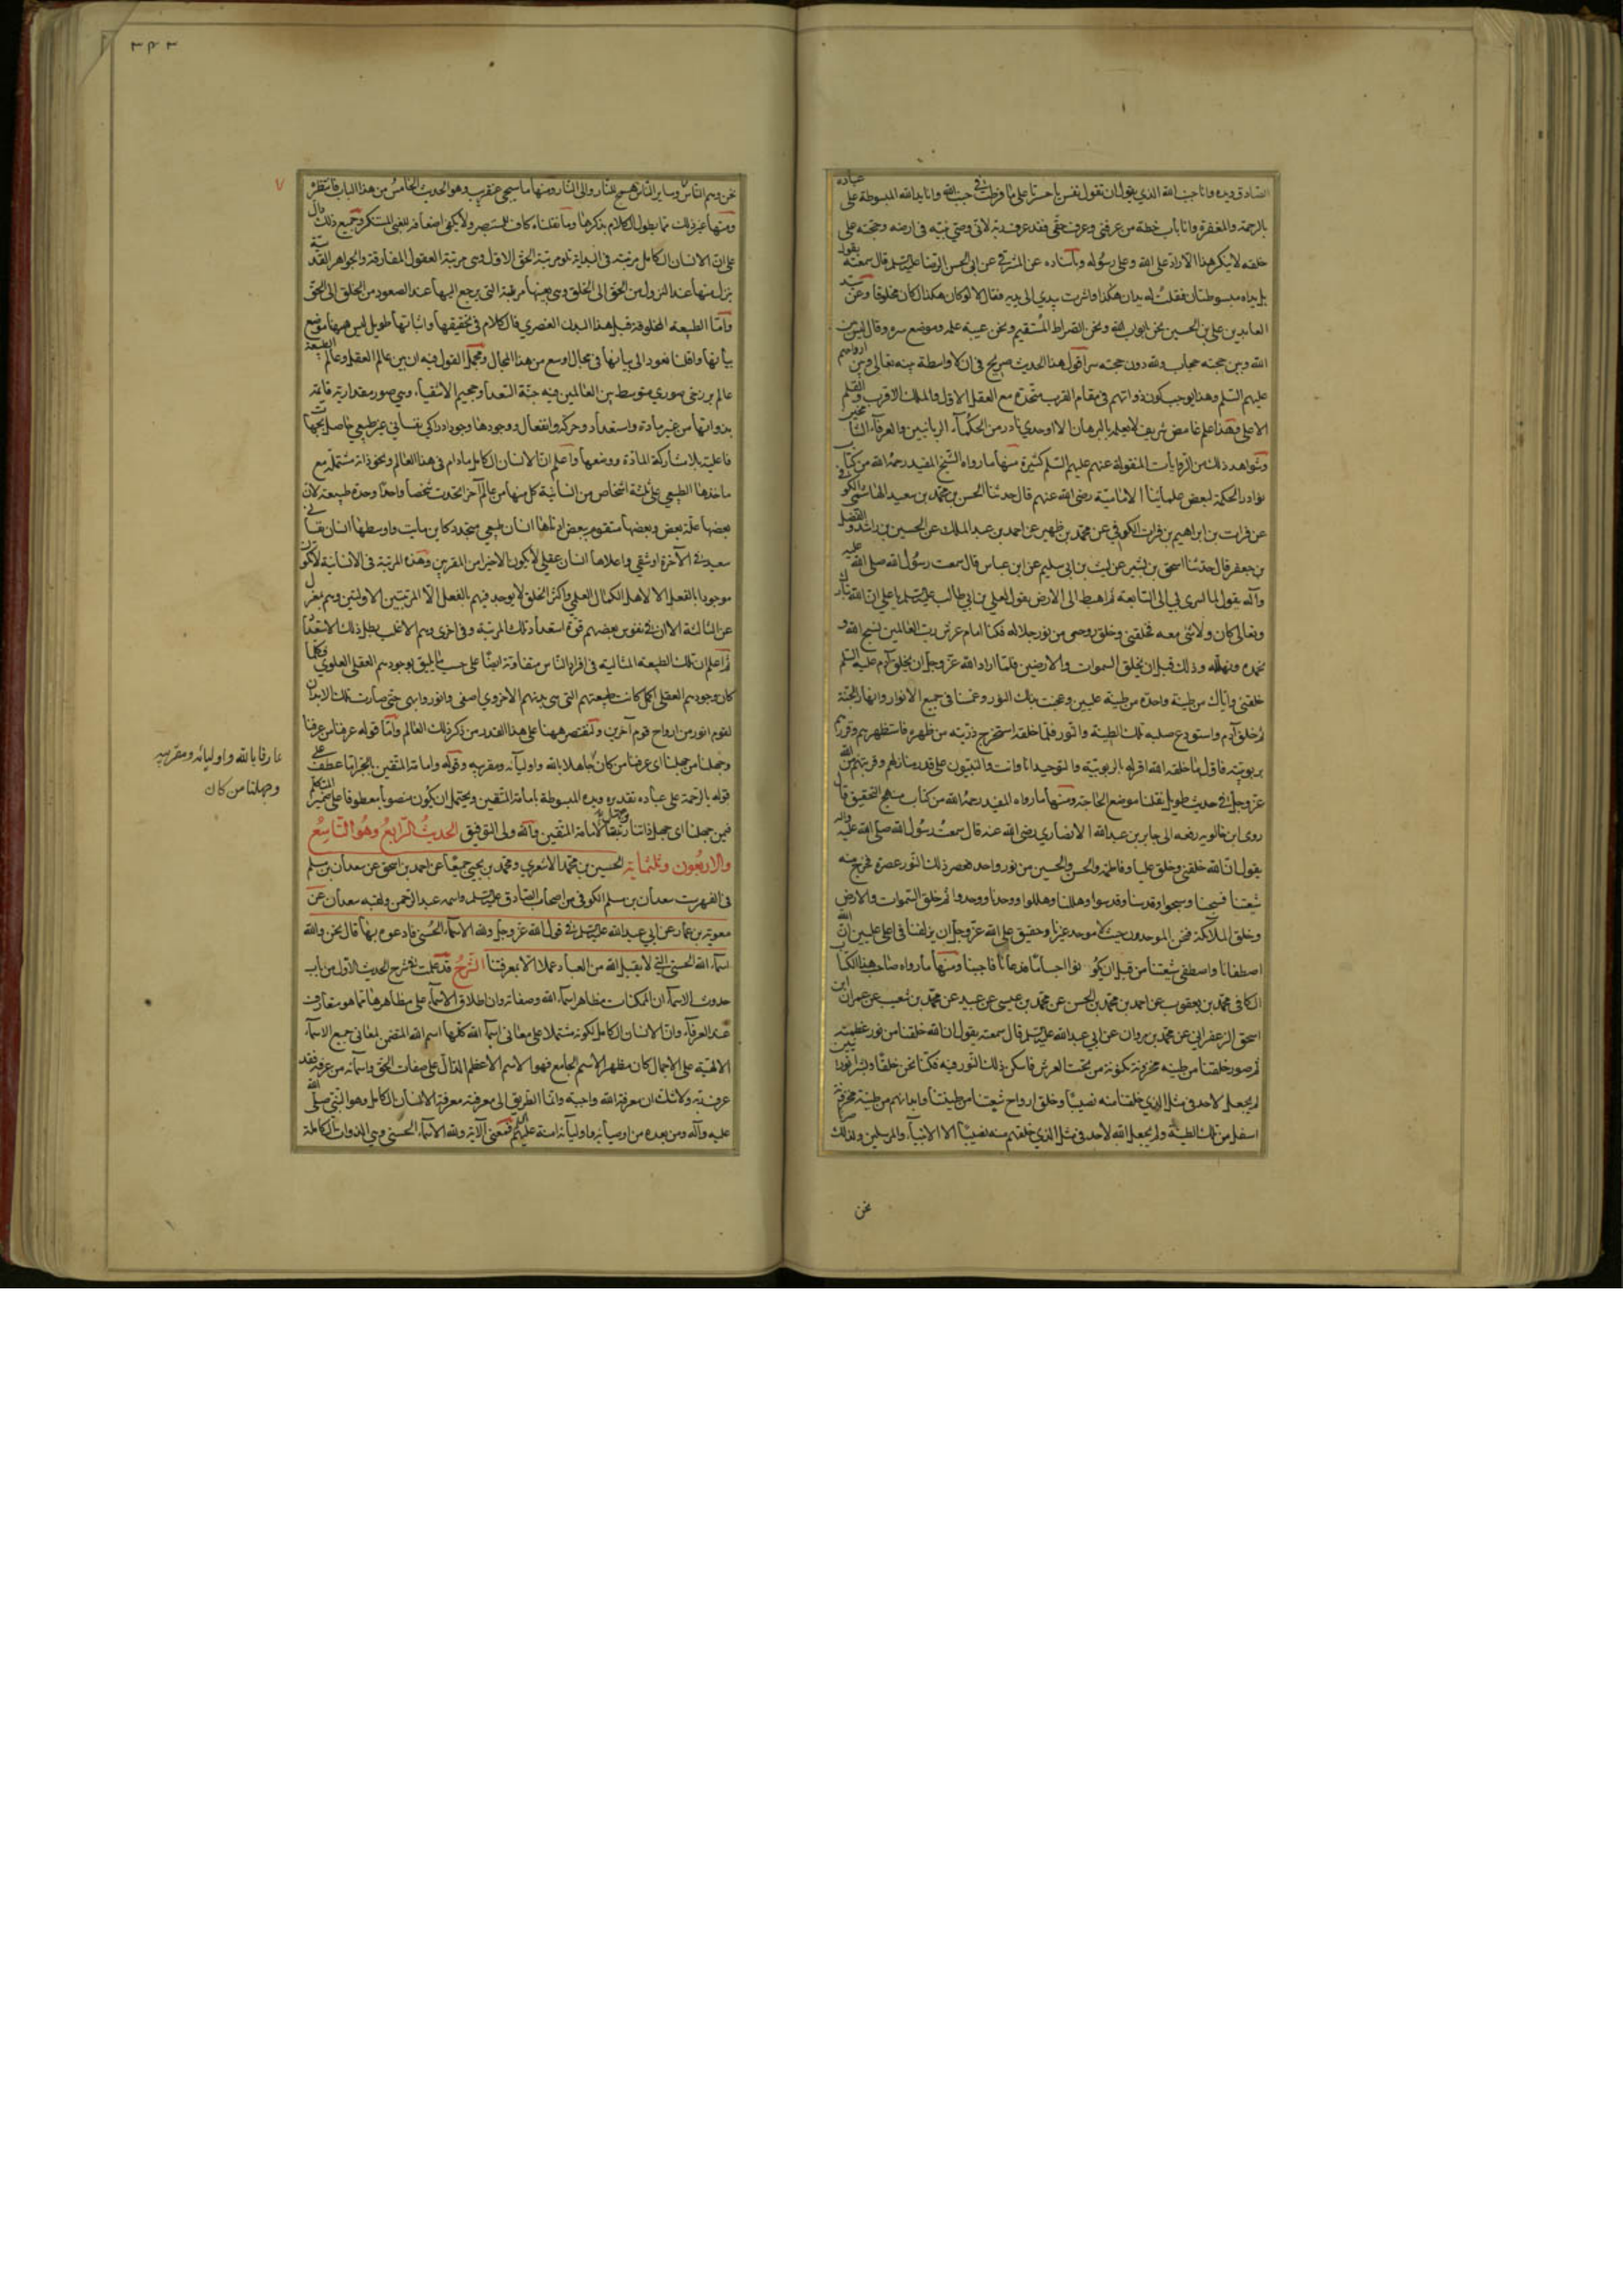 الصادق ويده وانا جنب الله الذي يقول ان تقول نفس يا حسرتا على ما فرطت في جنب الله وانا يد الله المبسوطة على عباده
بالرحمة والمغفرة وانا باب حطة من عرفني وعرف حقي فقد عرف ربه لاني وصي نبيه في ارضه وحجته على
خلقه لا ينكر هذا الا راد على الله وعلى رسوله وباسناده عن المشرقي عن ابي الحسن الرضا عليه السلم قال سمعته يقول
بل يداه مبسوطتان فقلت له يدان هكذا واشرت بيدي الى يديه فقال لا لو كان هكذا لكان مخلوقا وعن سيد
العابدين علي بن الحسين نحن ابواب الله ونحن الصراط المستقيم ونحن عيبة علمه وموضع سره وقال ليس بين
الله وبين حجته حجاب ولا لله دون حجته ستر اقول هذا الحديث صريح في ان لا واسطة بينه تعالى وبين ارواحهم
عليهم السلم وهذا يوجب كون ذواتهم في مقام القرب متحدة مع العقل الاول والملك الاقرب والقلم
الاعلى وهذا علم غامض شريف لا يعلمه بالبرهان الا اوحدي نادر من الحكماء الربانيين والعرفاء
وشواهد ذلك من الروايات المنقولة عنهم عليهم السلم كثيرة منها ما رواه الشيخ المفيد رحمه الله من كتاب
نوادر الحكمة لبعض علمائنا الامامية رضي الله عنهم قال حدثنا الحسن بن محمد بن سعيد الهاشمي الكوفي
عن فرات بن ابراهيم بن فرات الكوفي عن محمد بن ظهير عن احمد بن عبد الملك عن الحسين بن راشد والفضل
بن جعفر قال حدثنا اسحق بن بشير عن ليث بن ابي سليم عن ابن عباس قال سمعت رسول الله صلى الله عليه
وآله يقول لما اسرى بي الى السابعة ثم اهبط الى الارض يقول لعلي بن ابي طالب عليه السلم يا علي ان الله تبارك
وتعالى كان ولا شيء معه فخلقني وخلق روحي من نور جلاله فكنا امام عرش رب العالمين نسبح الله و
نحمده ونهلله وذلك قبل ان يخلق السموات والارضين فلما اراد الله عز وجل ان يخلق آدم عليه السلم
خلقني واياك من طينة واحدة من طينة عليين وعجنت بذلك النور وغمسنا في جميع الانوار وانهار الجنة
ثم خلق آدم واستودع صلبه تلك الطينة والنور فلما خلقه استخرج ذريته من ظهره فاستنطقهم وقررهم
بربوبيته فاول ما خلقه الله اقر له بالربوبية والتوحيد انا وانت والنبيون على قدر منازلهم وقربهم من الله
عز وجل في حديث طويل نقلنا موضع الحاجة ومنها ما رواه المفيد رحمه الله من كتاب منهج التحقيق قال
روى ابن خالويه رفعه الى جابر بن عبد الله الانصاري رضي الله عنه قال سمعت رسول الله صلى الله عليه وآله
يقول ان الله خلقني وخلق عليا وفاطمة والحسن والحسين من نور واحد فعصر ذلك النور عصرة فخرج منه
شيعتنا فسبحنا وسبحوا وقدسنا وقدسوا وهللنا وهللوا ووحدنا ووحدوا ثم خلق السموات والارض
وخلق الملائكة فنحن الموحدون حيث لا موحد غيرنا وحقيق على الله عز وجل ان يزلفنا في اعلى عليين ان الله
اصطفانا واصطفى شيعتنا من قبل ان نكو نوا اجساما فدعانا فاجبنا ومنها ما رواه صاحب هذا الكتاب
الكافي محمد بن يعقوب عن احمد بن محمد بن الحسن عن محمد بن عيسى عن عبيد عن محمد بن شعيب عن عمران ابن
اسحق الزعفراني عن محمد بن مروان عن ابي عبد الله عليه السلم قال سمعته يقول ان الله خلقنا من نور عظمته
ثم صور خلقنا من طينة مخزونة مكنونة من تحت العرش فاسكن ذلك النور فيه فكنا نحن خلقا وبشرا نورانيين
لم يجعل لاحد في مثل الذي خلقنا منه نصيبا وخلق ارواح شيعتنا من طينتنا وابدانهم من طينة مخزونة
اسفل من تلك الطينة ولم يجعل الله لاحد في مثل الذي خلقهم منه نصيبا الا الانبياء والمرسلين ولذلك صرنا
نحن
٣٤٣
نحن وهم الناس وساير الناس همج للنار والى النار ومنها ما سيجيء عنقريب وهو الحديث الخامس من هذا الباب فانتظر
ومنها غير ذلك مما يطول الكلام بذكرها وما نقلناه كاف للمستبصر ولا يكفي اضعافه للغبي المستنكر وجميع ذلك دال
على ان الانسان الكامل مرتبته في البداية تلو مرتبة الحق الاول وهي مرتبة العقول المفارقة والجواهر القدسية
نزل منها عند النزول من الحق الى الخلق وهي بعينها مرتبة التي يرجع اليها عند الصعود من الخلق الى الحق
واما الطبيعة المخلوقة قبل هذا البدن العنصري فالكلام في تحقيقها واثباتها طويل ليس ههنا موضع
بيانها ولعلنا نعود الى بيانها في مجال اوسع من هذا المجال ومجمل القول فيه ان بين عالم العقل وعالم الطبيعة
عالم برزخي صوري متوسط بين العالمين فيه جنة السعداء وجحيم الاشقياء وهي صور مقدارية قائمة
بذواتها من غير مادة واستعداد وحركة وانفعال ووجودها وجود ادراكي نفساني غير طبيعي حاصل
فاعلية بلا مشاركة المادة ووضعها واعلم ان الانسان الكامل ما دام في هذا العالم ونحو ذاته مشتملة مع
ماخذها الطبيعي على ثلثة اشخاص من انسانية كل منها من عالم آخر اتحدت شخصا واحدا وحدة طبيعية لان
بعضها علة بعض وبعضها متقوم ببعض ادناها انسان طبيعي متجدد كاين مايت واوسطها انسان نفساني
سعيد في الآخرة او شقي واعلاها انسان عقلي لا يكون الا خيرا من المقربين وهذه المرتبة في الانسانية لا تكون
موجودا بالفعل الا لاهل الكمال العلمي واكثر الخلق لا يوجد فيهم بالفعل الا المرتبتين الاوليتين وهم بمعزل
عن الثالثة الا ان في نفوس بعضهم قوة استعداد تلك المرتبة وفي اخرى وهم الاغلب بطل ذلك الاستعداد
ثم اعلم ان تلك الطبيعة المثالية في افراد الناس متفاوتة ايضا على حسب ما يليق بوجودهم العقلي العلوي فكلما
كان وجودهم العقلي اكمل كانت طبيعتهم التي هي بدنهم الاخروي اصفى وانور وابهى حتى صارت تلك الابدان
لقوم انور من ارواح قوم آخرين ولنقتصر ههنا على هذا القدر من ذكر ذلك العالم واما قوله عرفنا من عرفنا
وجهلنا من جهلنا اى عرفنا من كان جاهلا بالله واوليائه ومقربيه وقوله وامامة المتقين بالجر انها عطف على
قوله بالرحمة على عباده تقديره ويده المبسوطة بامامة المتقين ويحتمل ان يكون منصوبا معطوفا على ضمير المتكلم
فيمن جهلنا اى جهل ذاتنا وجهل رتبتنا لامامة المتقين والله ولي التوفيق الحديث الرابع وهو التاسع
والاربعون وثلثماية الحسين بن محمد الاشعري ومحمد بن يحيى جميعا عن احمد بن اسحق عن سعدان بن مسلم
في الفهرست سعدان بن مسلم الكوفي من اصحاب الصادق عليه السلم واسمه عبد الرحمن ولقبه سعدان عن
معوية بن عمار عن ابي عبد الله عليه السلم في قول الله عز وجل ولله الاسماء الحسنى فادعوه بها قال نحن والله
اسماء الله الحسنى التي لا يقبل الله من العباد عملا الا بمعرفتنا الشرح قد علمت في شرح الحديث الاول من باب
حدوث الاسماء ان الممكنات مظاهر اسماء الله وصفاته وان اطلاق الاسماء على مظاهرها مما هو متعارف
عند العرفاء وان الانسان الكامل لكونه مشتملا على معاني اسماء الله كلها اسم الله المتضمن لمعاني جميع الاسماء
الالهية على الاجمال كان مظهر الاسم الجامع فهو الاسم الاعظم الدال على صفات الحق واسمائه من عرفه فقد
عرف ربه ولا شك ان معرفة الله واجبة وانما الطريق الى معرفته معرفة الانسان الكامل وهو النبي صلى الله
عليه وآله ومن بعده من اوصيائه واوليائه امته عليهم السلم فمعنى الآية ولله الاسماء الحسنى وهي الذوات الكاملة
عارفا بالله واوليائه ومقربيه
وجهلنا من كان